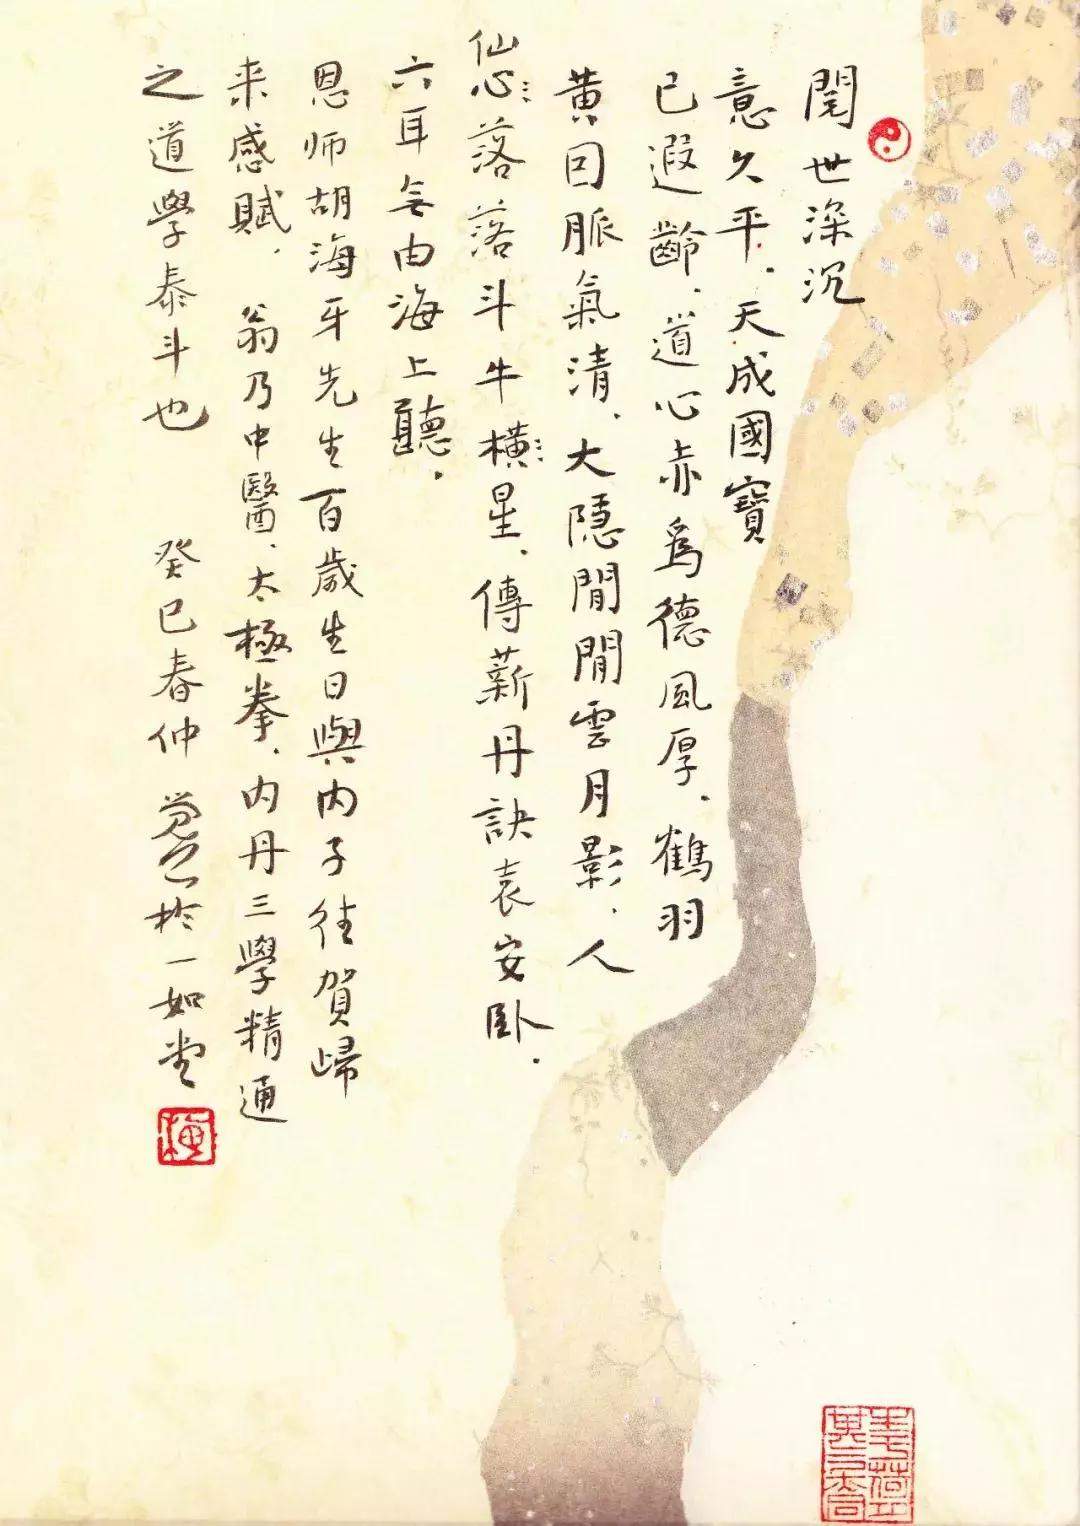 閱世深沉
意久平、天成國寶
已遐齡、道心赤爲德風厚、鶴羽
黄回脈氣清、大隱閒閒雲月影、人
仙心落落斗牛橫星、傳薪丹訣袁安卧.
六耳无由海上聽.
恩師胡海牙先生百歲生日與内子往賀歸
来感賦、翁乃中醫、太極拳、内丹三學精通
之道學泰斗也 癸巳春仲 於一如堂